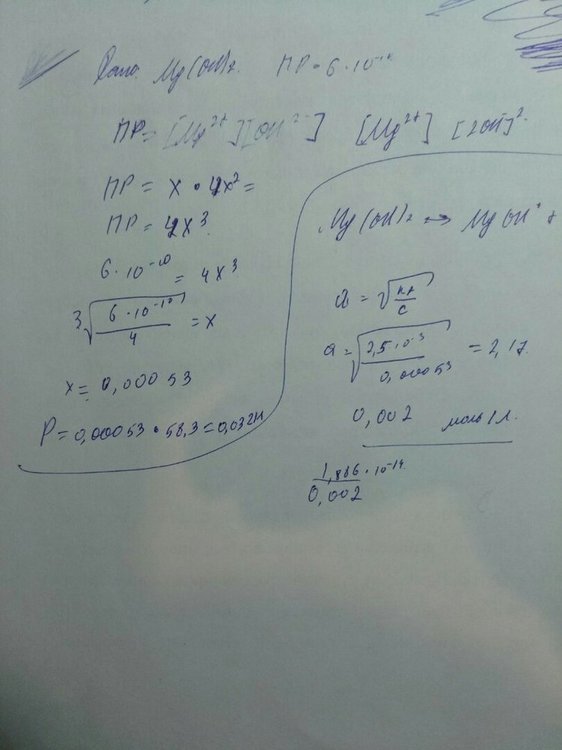 Mg(OH)₂ ПР = 6 · 10⁻¹⁰
ПР = [Mg²⁺][OH²⁻] [Mg²⁺] [2OH]²
ПР = x · 4x² =
ПР = 4x³
6 · 10⁻¹⁰ = 4x³
3√(6 · 10⁻¹⁰ / 4) = x
x = 0,00053
P = 0,00053 · 58,3 = 0,032
Mg(OH)₂ ↔ MgOH⁺ +
a = √(/c)
a = √(2,5 · 10⁻³ / 0,00053) = 2,17
0,002 моль/л.
1,866 · 10⁻¹⁴
0,002